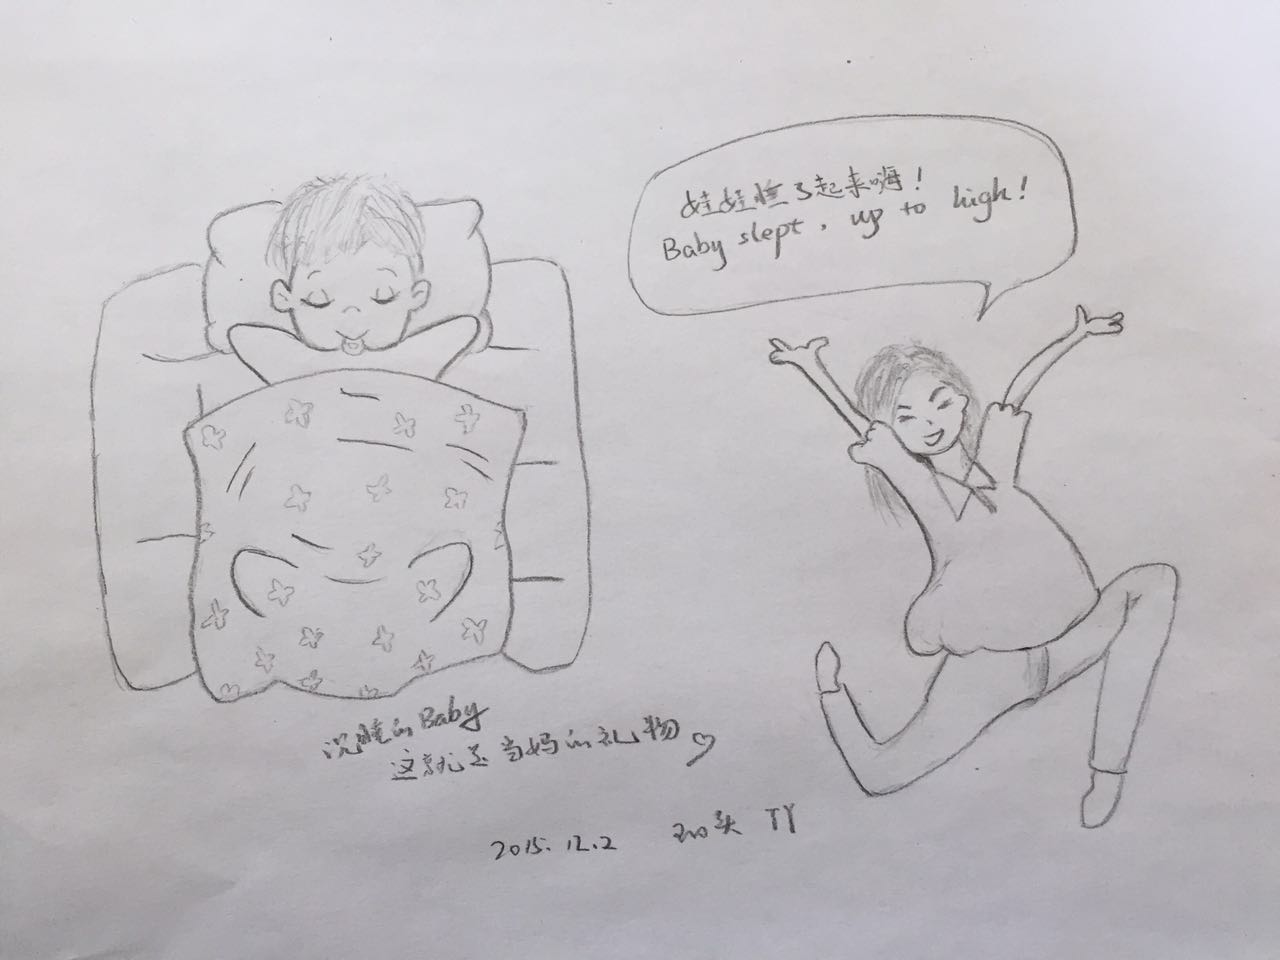 娃娃睡了起来嗨!
Baby slept, up to high!
沉睡的Baby
这就是当妈的礼物♡
2015.12.2 丫